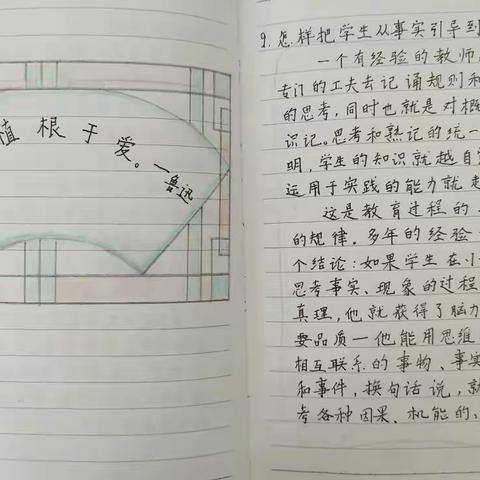 植根于爱。—鲁迅
9.怎样把学生从事实引导到
一个有经验的教师
专门的工夫去记诵规则和
的思考,同时也就是对概
识记。思考和熟记的统一
明,学生的知识就越自
运用于实践的能力就
这是教育过程的
的规律。多年的经验
个结论:如果学生在小
思考事实、现象的过程
真理,他就获得了脑力
要品质—他能用思维
相互联系的事物、事实
和事件,换句话说,就
考各种因果、机能的、